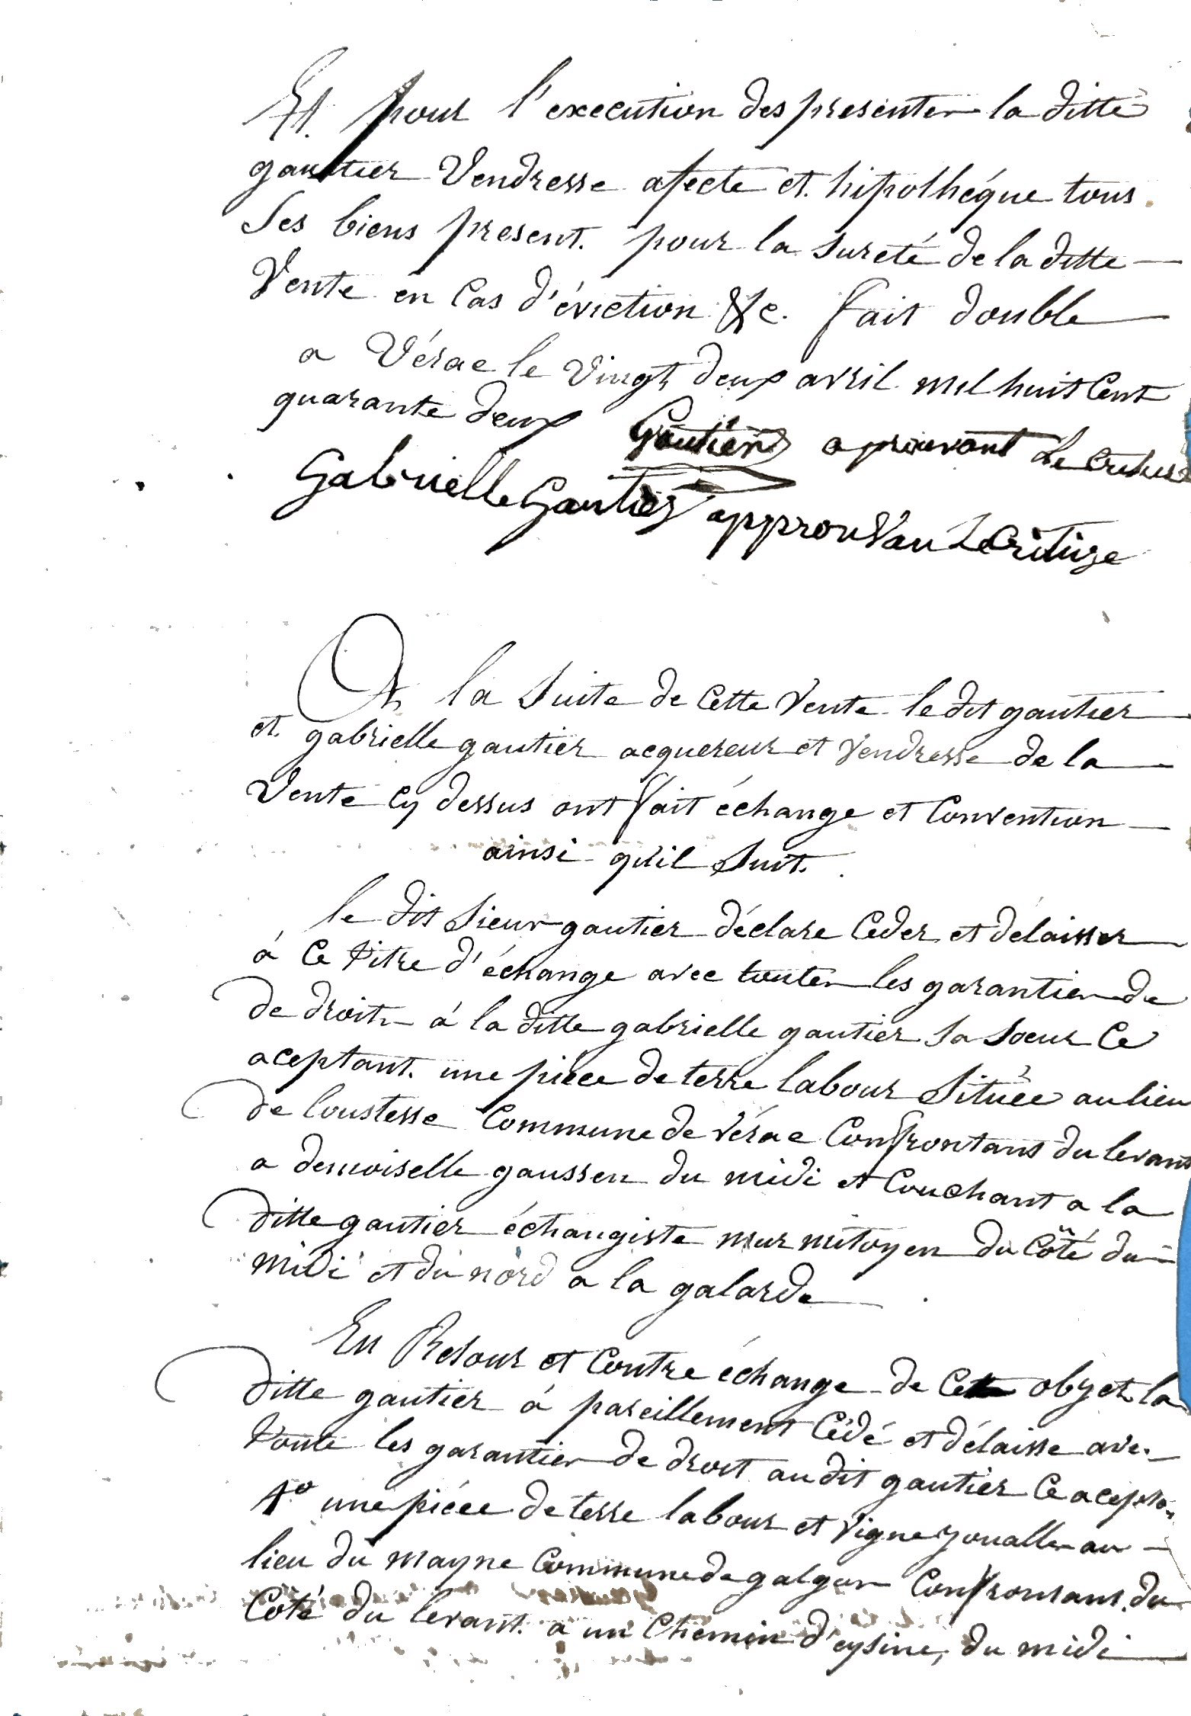 Et pour l'execution des presentes la ditte
gautier Vendresse afecte et hipothéque tous
Ses biens present. pour la sureté de la ditte
Vente en Cas d'éviction &c. fait double
a Vérac le Vingt deux avril mil huit Cent
quarante deux Gautier aprouvant Lecriture
Gabrielle Gautier approuvan Lecriture
la Suite de Cette Vente le dit gautier
et gabrielle gautier acquereur et Vendresse de la
Vente Cy dessus ont fait échange et Convention
ainsi qu'il Suit.
le dit Sieur gautier déclare Ceder et délaisser
á Ce titre d'échange avec toutes les garanties de
de droits á la ditte gabrielle gautier Sa Soeur Ce
aceptant. une piéce de terre labour Située au lieu
de Coustesse Commune de Vérac Confrontans du levant
a demoiselle gaussen du midi et Couchant a la
ditte gautier échangiste mur mitoyen du Côté du
midi et du nord a la galarde
En Retour et Contre échange de Cette objet la
ditte gautier á pareillement Cédé et délaisse avec
toute les garanties de droit au dit gautier Ce acepta
1º une piéce de terre labour et Vigne joualle au
lieu du mayne Commune de galgon Confrontant. du
Coté du levant. a un Chemin d'eysine, du midi